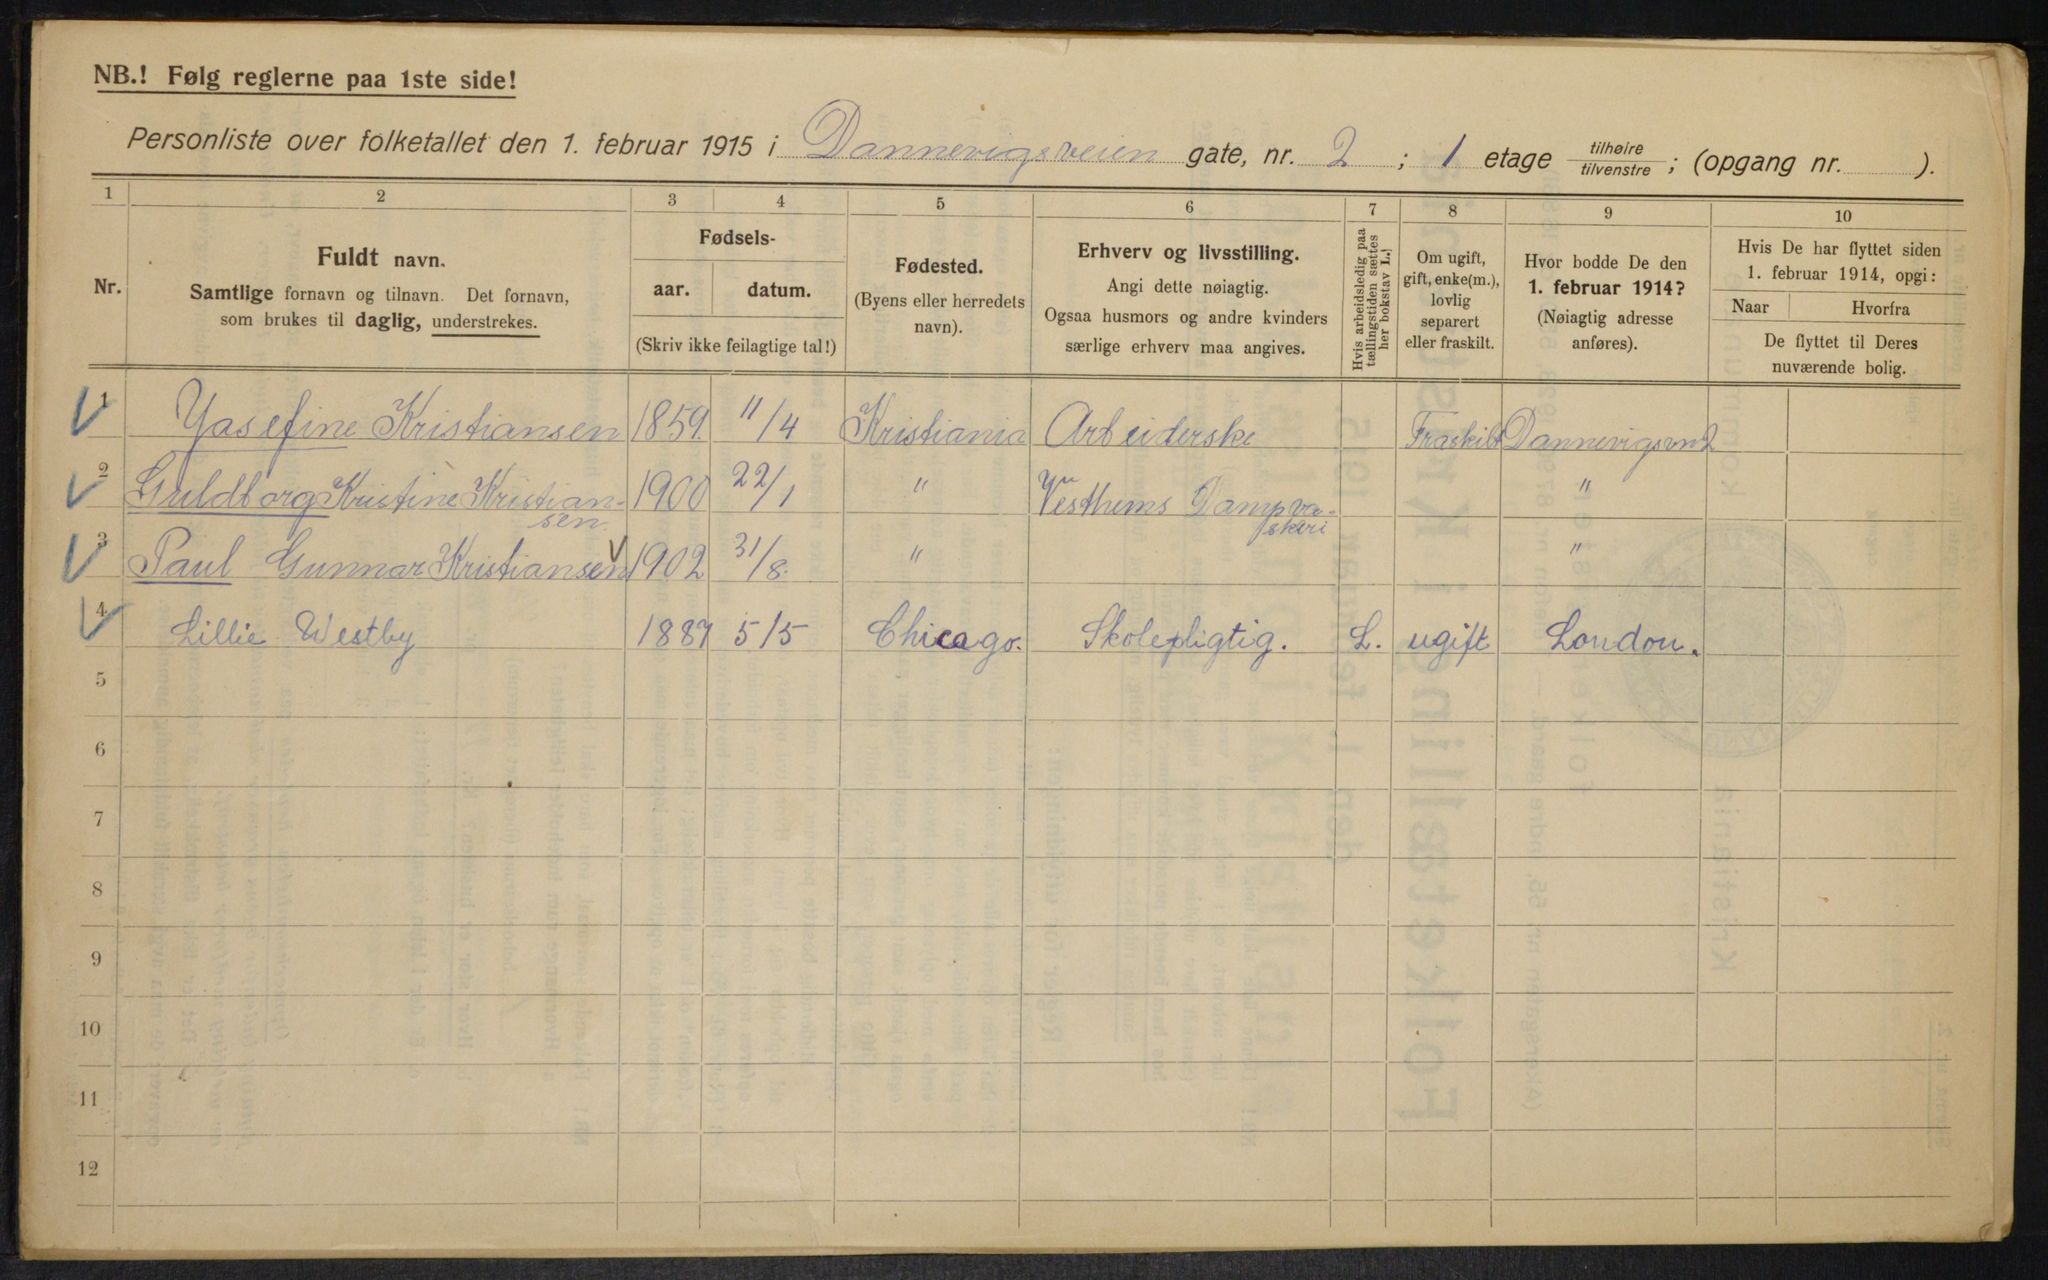 NB.! Følg reglerne paa 1ste side!
Personliste over folketallet den 1. februar 1915 i Dannevigsveien gate, nr. 2 ; 1 etage tilhøire tilvenstre ; (opgang nr. ).
1 2 3 4 5 6 7 8 9 10
Nr.
Fuldt navn.
Samtlige fornavn og tilnavn. Det fornavn,
som brukes til daglig, understrekes.
Fødsels-
aar. datum.
(Skriv ikke feilagtige tal!)
Fødested.
(Byens eller herredets
navn).
Erhverv og livsstilling.
Angi dette nøiagtig.
Ogsaa husmors og andre kvinders
særlige erhverv maa angives.
Hvis arbeidsledig paa
tællingstiden sættes
her bokstav L.!
Om ugift,
gift, enke(m.),
lovlig
separert
eller fraskilt.
Hvor bodde De den
1. februar 1914?
(Nøiagtig adresse
anføres).
Hvis De har flyttet siden
1. februar 1914, opgi:
Naar Hvorfra
De flyttet til Deres
nuværende bolig.
1 Yasefine Kristiansen 1859. 11/4 Kristiania Arbeiderske Fraskilt Dannevigsvn 2
2 Guldborg Kristine Kristian- 1900 22/1 " Vesthems Dampva- "
sen skeri
3 Paul Gunnar Kristiansen 1902 31/8. " "
4 Lillie Westby 1887 5/5 Chicago. Skolepligtig. L. ugift London.
5
6
7
8
9
10
11
12